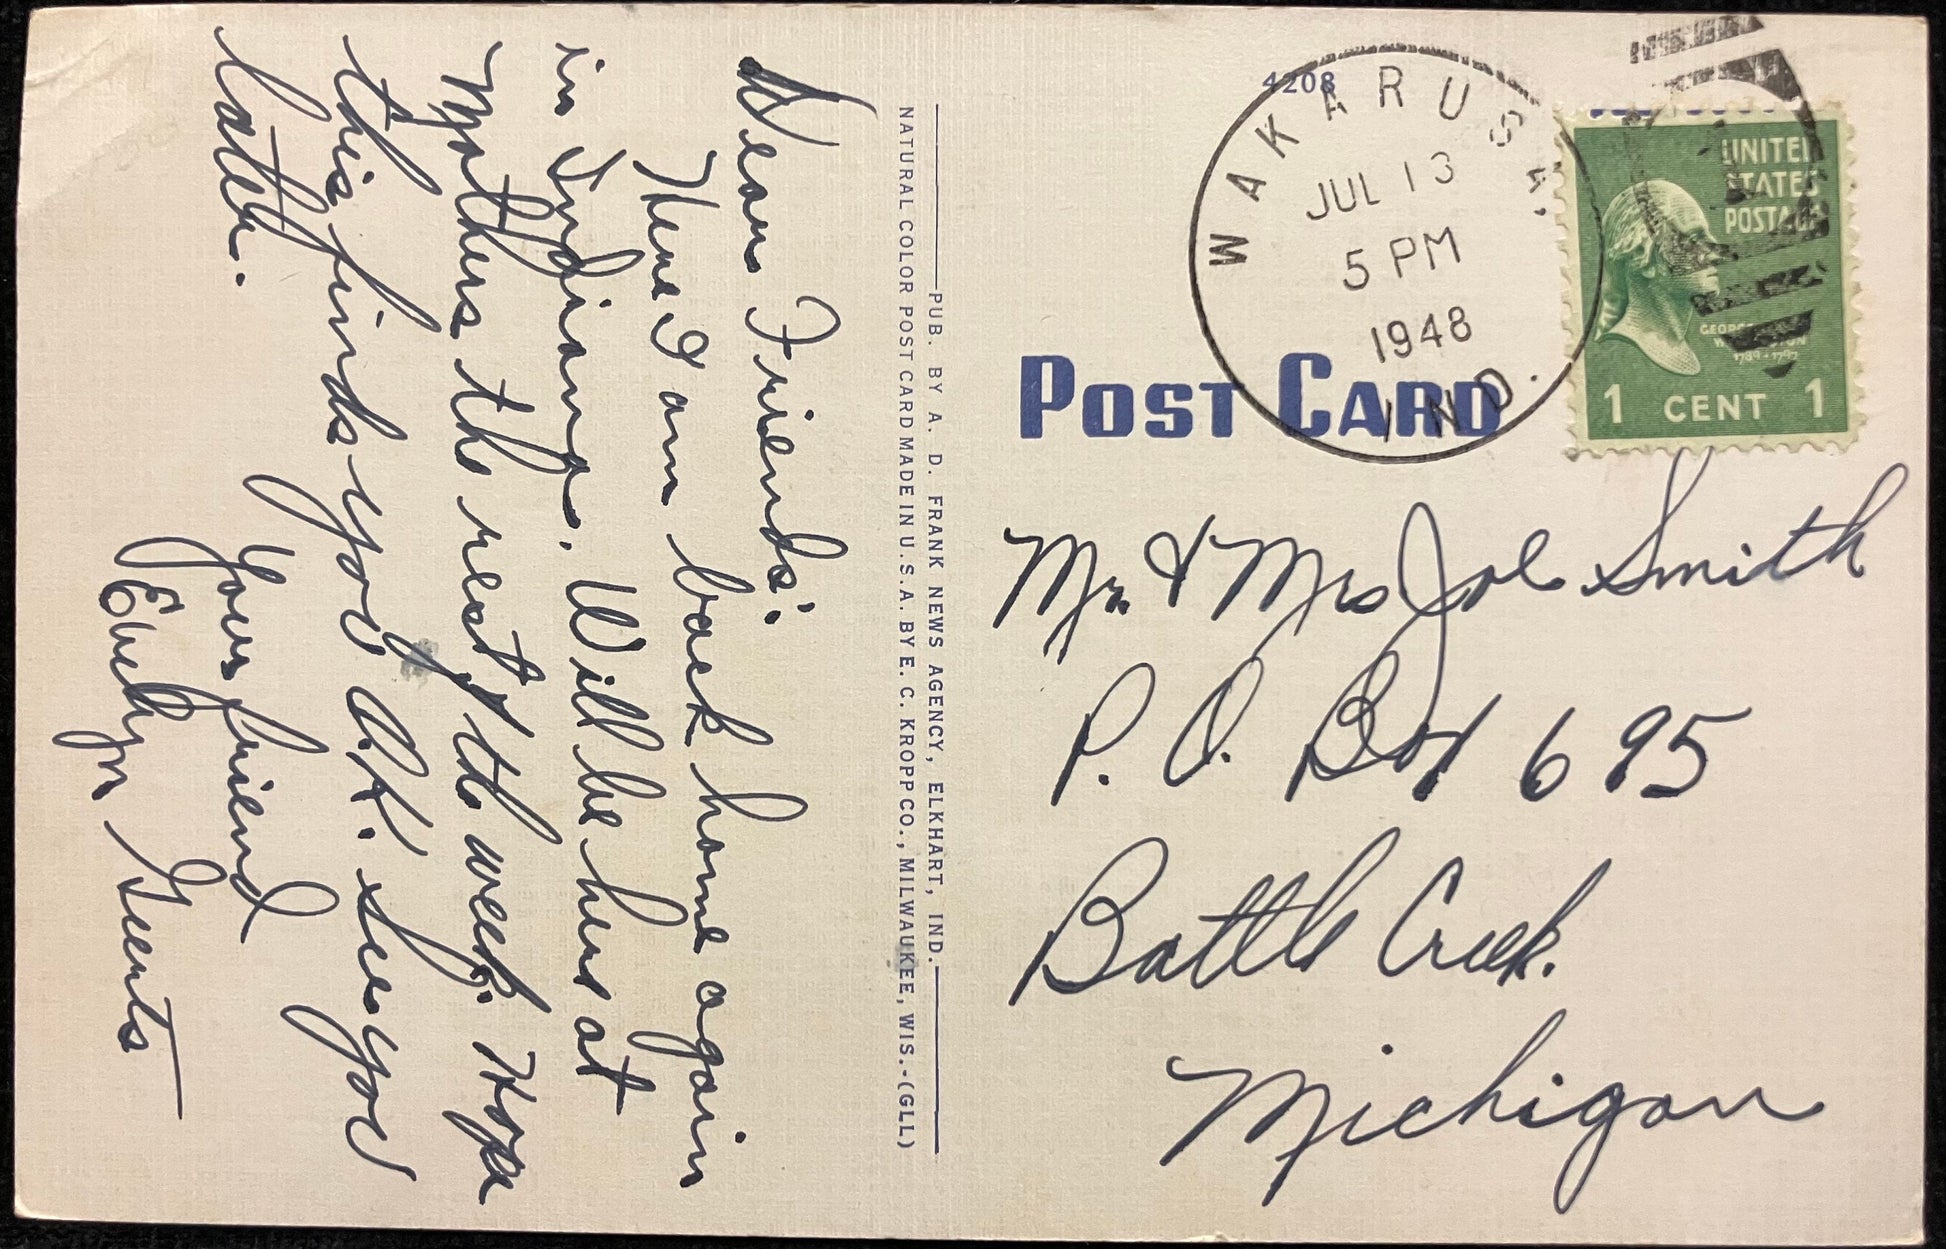 Dear Friends:
Here I am back home again
in Indiana. Will be here at
Mothers the rest of the week. Hope
this finds you O.K. See you
later.
Your friend
Evelyn
PUB. BY A. D. FRANK NEWS AGENCY, ELKHART, IND.
NATURAL COLOR POST CARD MADE IN U.S.A. BY E. C. KROPP CO., MILWAUKEE, WIS.-(GLL)
4208
WAKARUSA, IND.
JUL 13
5 PM
1948
UNITED
STATES
POSTAGE
GEORGE
WASHINGTON
1789-1797
1 CENT 1
POST CARD
Mr. & Mrs Joe Smith
P. O. Box 695
Battle Creek.
Michigan